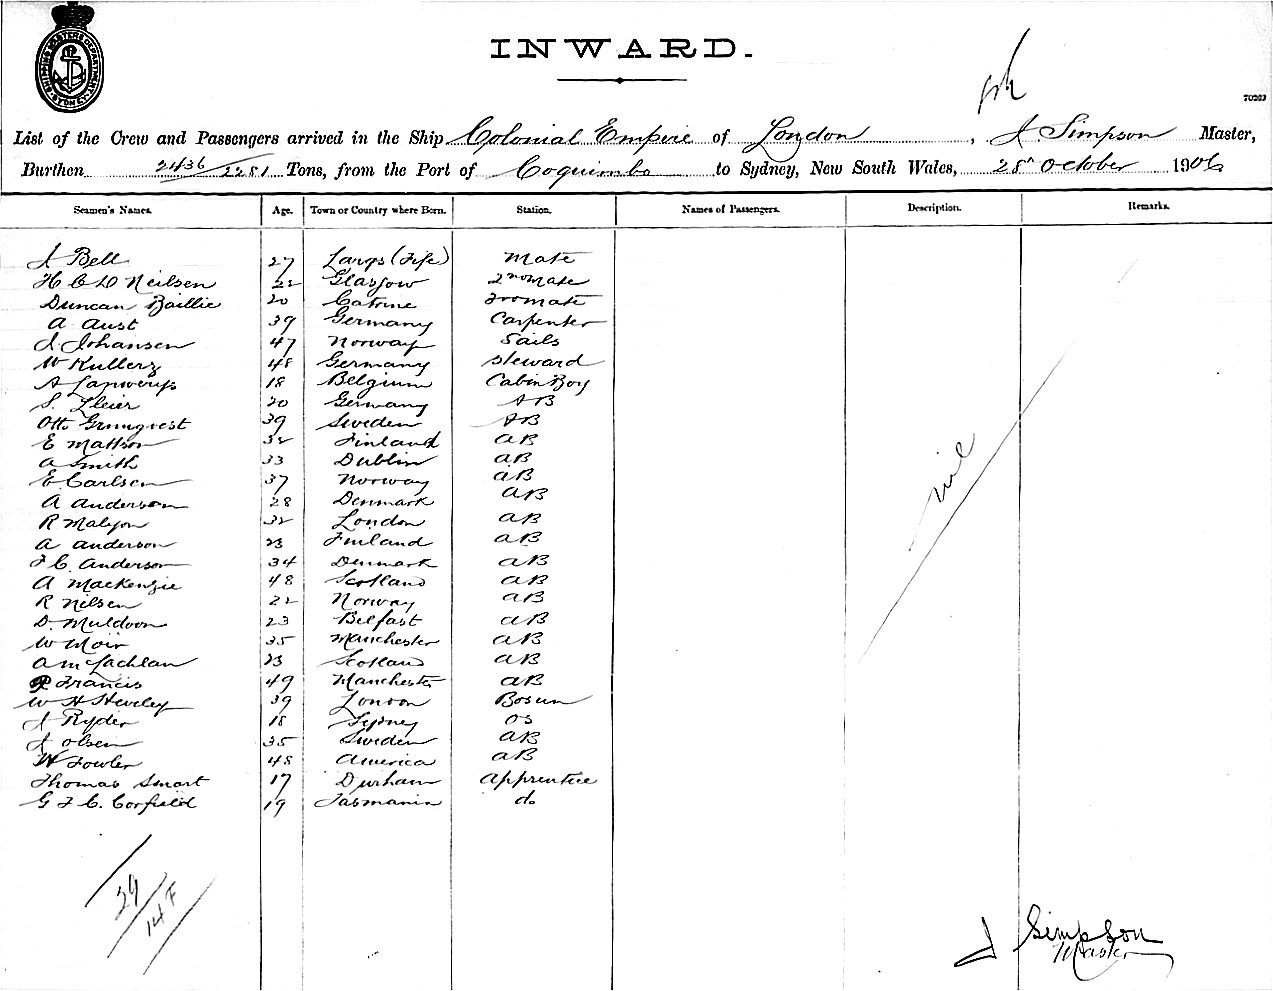 SHIPPING MASTERS DEPARTMENT SYDNEY
INWARD.
70263
List of the Crew and Passengers arrived in the Ship Colonial Empire of London, J. Simpson Master,
Burthen 2436/2281 Tons, from the Port of Coquimbo to Sydney, New South Wales, 28th October 1906
Seamen's Names. Age. Town or Country where Born. Station. Names of Passengers. Description. Remarks.
J Bell 27 Largs (Fife) Mate
H C D Neilsen 22 Glasgow 2nd Mate
Duncan Baillie 20 Catrine 3rd Mate
A Aust 39 Germany Carpenter
J. Johansen 47 Norway Sails
W Kullerz 48 Germany Steward
A 18 Belgium Cabin Boy
S. 20 Germany AB
Otto Grunqvest 39 Sweden AB
E Mattson 32 Finland AB
A Smith 33 Dublin AB
E Carlsen 37 Norway AB
A Anderson 28 Denmark AB
R Malyon 32 London AB
A Anderson 23 Finland AB
F C. Anderson 34 Denmark AB
A Mackenzie 48 Scotland AB
R Nilsen 22 Norway AB
D. Muldoon 23 Belfast AB
W Moir 35 Manchester AB
A McLachlan 23 Scotland AB
Francis 49 Manchester AB
W H 39 London Bosun
J Ryder 18 Sydney OS
J Olsen 35 Sweden AB
W Fowler 48 America AB
Thomas Smart 17 Durham Apprentice
G F C. Corfield 19 Tasmania do
nil
29
14 F
J Simpson
Master